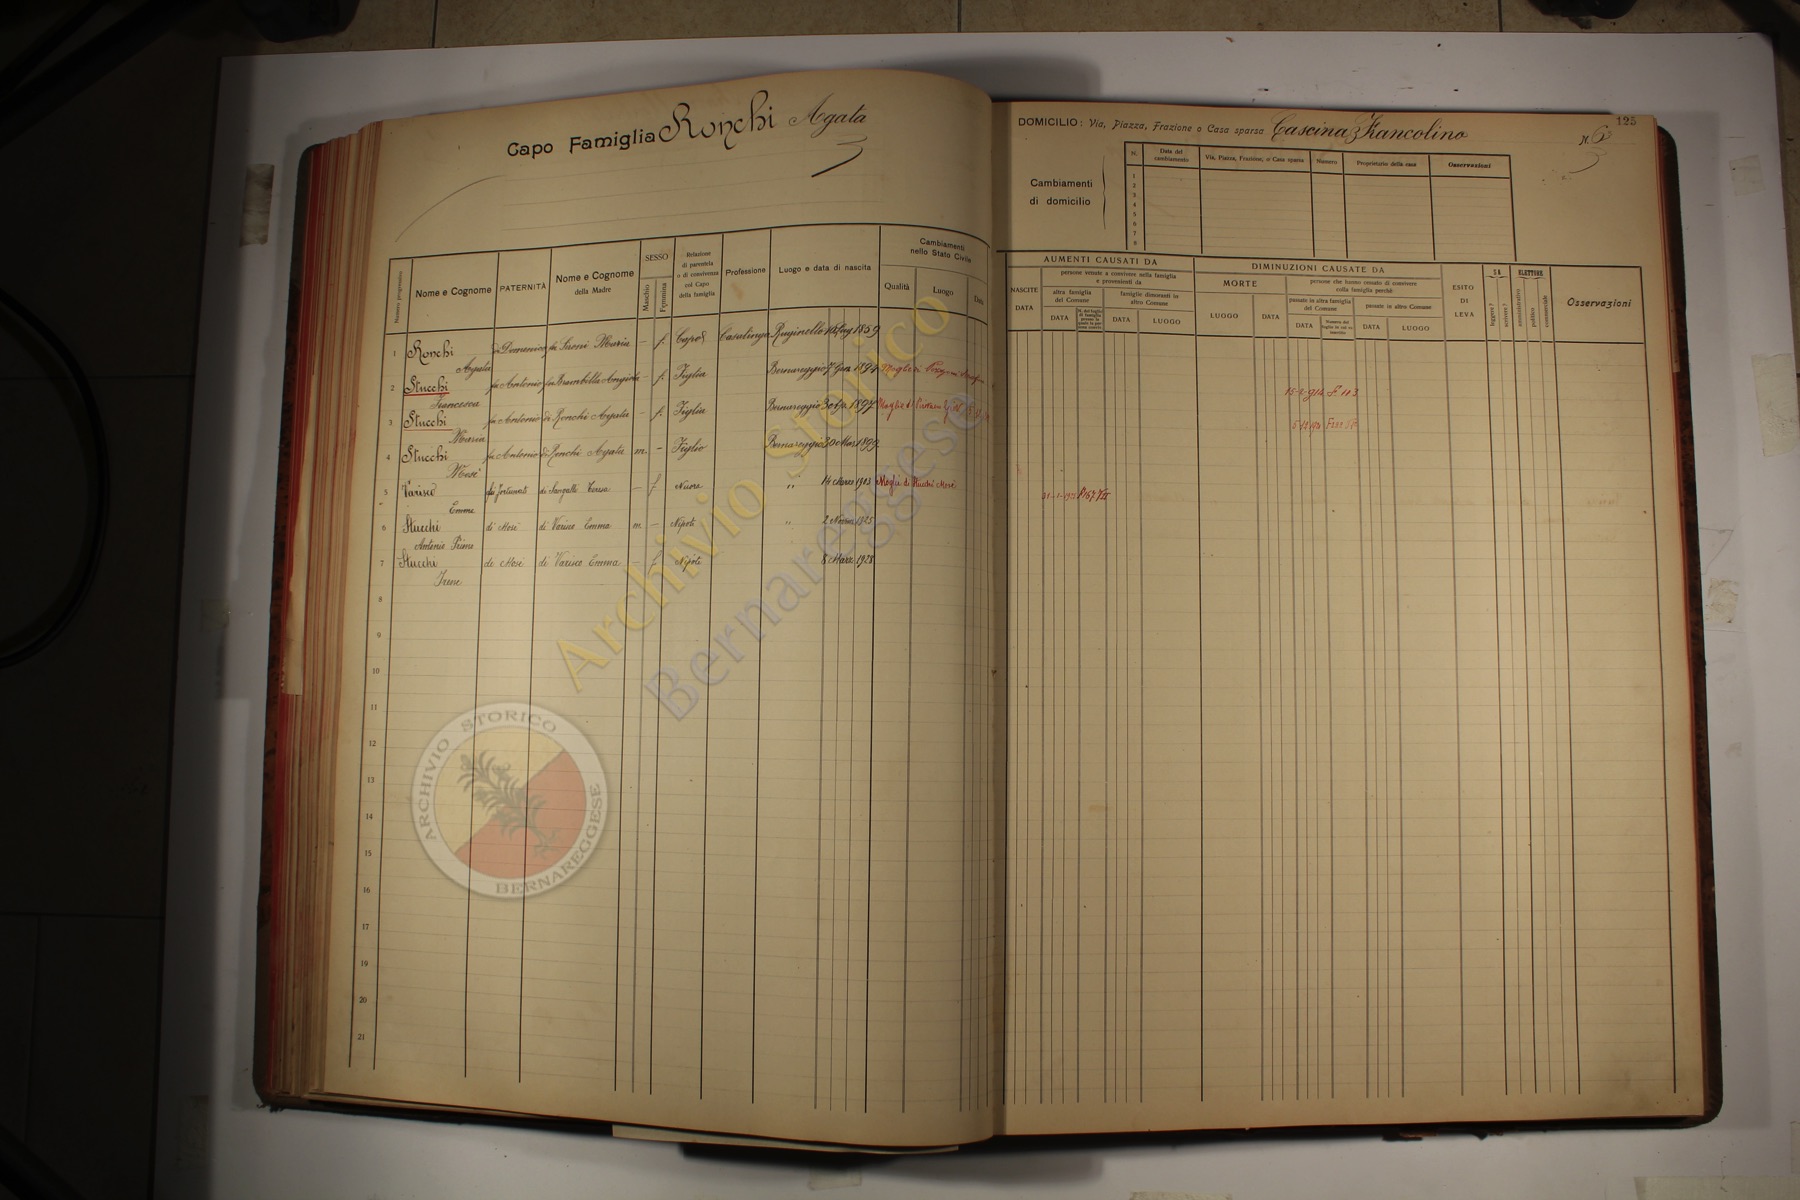 Capo Famiglia Ronchi Agata
Cambiamenti
nello Stato Civile
Numero progressivo
Nome e Cognome
PATERNITÀ
Nome e Cognome
della Madre
SESSO
Maschio
Femmina
Relazione
di parentela
o di convivenza
col Capo
della famiglia
Professione
Luogo e data di nascita
Qualità
Luogo
Data
1 Ronchi di Domenico fu Sironi Maria - f. Capo Casalinga Ruginello 1859
Agata
2 Stucchi fu Antonio fu Brambilla Angiola - f. Figlia Bernareggio 7 1894 Moglie di
Francesca
3 Stucchi fu Antonio di Ronchi Agata - f. Figlia Bernareggio 3 1897 Moglie di
Maria
4 Stucchi fu Antonio di Ronchi Agata m. - Figlio Bernareggio 30 Mar. 1899
Mosè
5 Varisco di Fortunato di Sangalli Teresa - f Nuora " 14 Marzo 1903 Moglie di Stucchi Mosè
Emma
6 Stucchi di Mosè di Varisco Emma m. - Nipote " 2 1925
Antonio Primo
7 Stucchi di Mosè di Varisco Emma - f Nipote 8 Marz. 1928
Irene
8
9
10
11
12
13
14
15
16
17
18
19
20
21
125
DOMICILIO: Via, Piazza, Frazione o Casa sparsa Cascina Francolino
N. 6
Cambiamenti
di domicilio
N.
Data del
cambiamento
Via, Piazza, Frazione, o Casa sparsa
Numero
Proprietario della casa
Osservazioni
1
2
3
4
5
6
7
8
AUMENTI CAUSATI DA
persone venute a convivere nella famiglia
e provenienti da
NASCITE
DATA
altra famiglia
del Comune
DATA
famiglie dimoranti in
altro Comune
DATA
LUOGO
DIMINUZIONI CAUSATE DA
MORTE
LUOGO
DATA
persone che hanno cessato di convivere
colla famiglia perchè
passate in altra famiglia
del Comune
DATA
passate in altro Comune
DATA
LUOGO
ESITO
DI
LEVA
SA
leggere?
scrivere?
ELETTORE
amministrativo
politico
commerciale
Osservazioni
113
Archivio Storico
Bernareggese
ARCHIVIO STORICO
BERNAREGGESE